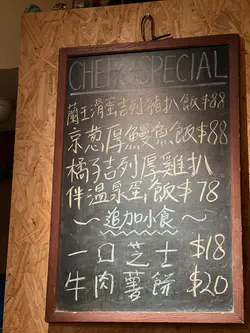 CHEF'S SPECIAL
蘭王滑蛋吉列豬扒飯$88
京葱厚鰻魚飯$88
橘子吉列厚雞扒
伴溫泉蛋飯$78
~追加小食~
一口芝士 $18
牛肉薯餅 $20